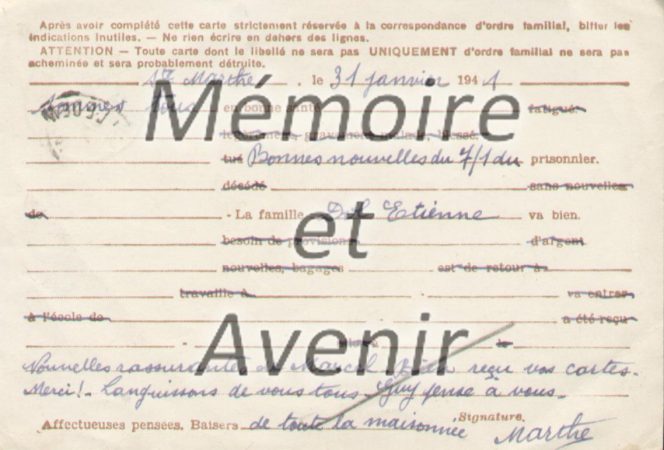 Après avoir complété cette carte strictement réservée à la correspondance d'ordre familial, biffer les
indications inutiles. — Ne rien écrire en dehors des lignes.
ATTENTION — Toute carte dont le libellé ne sera pas UNIQUEMENT d'ordre familial ne sera pas
acheminée et sera probablement détruite.
Ste Marthe, le 31 janvier 1941
Sommes tous en bonne santé fatigué.
Mémoire
légèrement, gravement malade, blessé.
tué Bonnes nouvelles du 7/1 du prisonnier.
décédé sans nouvelles
de La famille Etienne va bien.
et
besoin de provisions d'argent
nouvelles, bagages est de retour à
travaille à va entrer
à l'école de a été reçu
Avenir
Nouvelles de Marcel reçu vos cartes.
Merci! Languissons de vous tous. Guy pense à vous.
Affectueuses pensées. Baisers de toute la maisonnée Signature.
Marthe